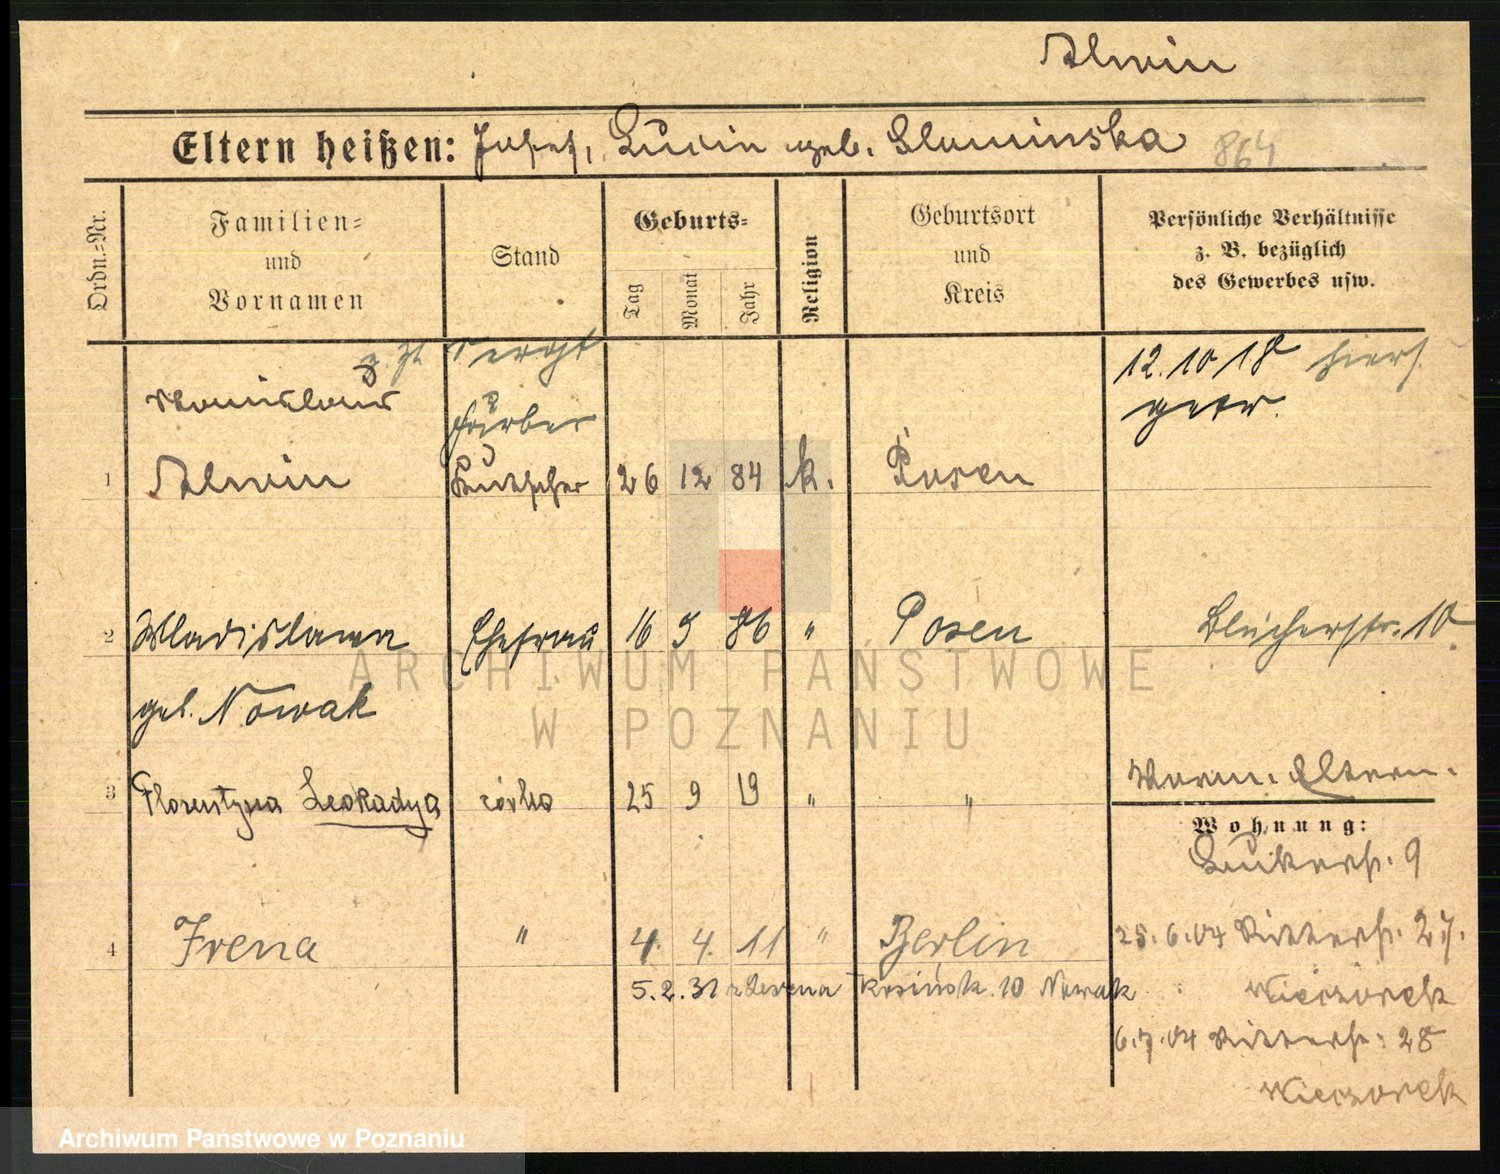 Alwin
Eltern heißen: Josef, Lucia geb. Slominska 864
Ordn.-Nr.
Familien- und Vornamen
Stand
Geburts-
Tag
Monat
Jahr
Religion
Geburtsort und Kreis
Persönliche Verhältnisse
z. B. bezüglich
des Gewerbes usw.
z. Zt.
12.10 18 hiers.
Stanislaus Färber getr.
1 Alwin Kutscher 26 12 84 k. Posen
2 Wladislawa Ehefrau 16 9 86 " Posen Blücherstr. 10
geb. Nowak
3 Florentyna Leokadya córka 25 9 19 " " Eltern.
Wohnung:
9
4 Irena " 4. 4. 11 " Berlin 25.6.04 Ritterstr. 27.
5.2.31 z Leszna 10 Nowak Wieczorek
6.7.04 Ritterstr. 28
Wieczorek
ARCHIWUM PAŃSTWOWE
W POZNANIU
Archiwum Państwowe w Poznaniu